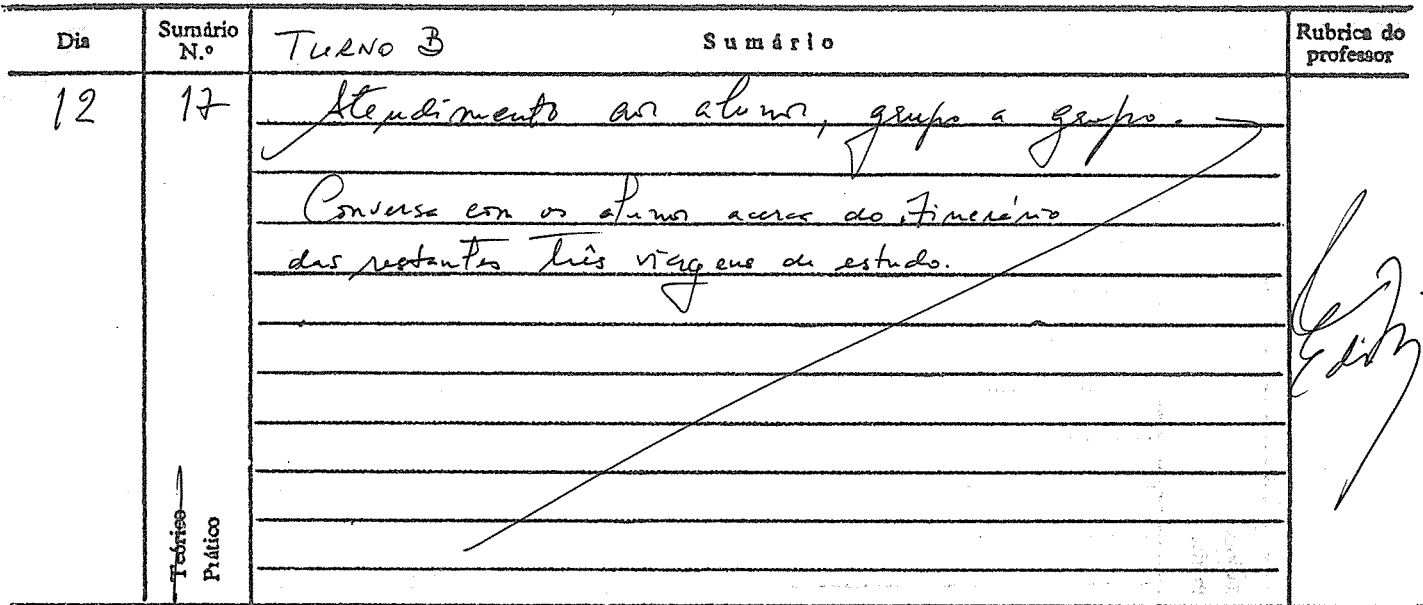 Dia
Sumário N.º
TURNO B
Sumário
Rubrica do professor
12
17
Atendimento aos alunos, grupo a grupo.
Conversa com os alunos acerca do itinerário
das restantes três viagens de estudo.
Teórico
Prático